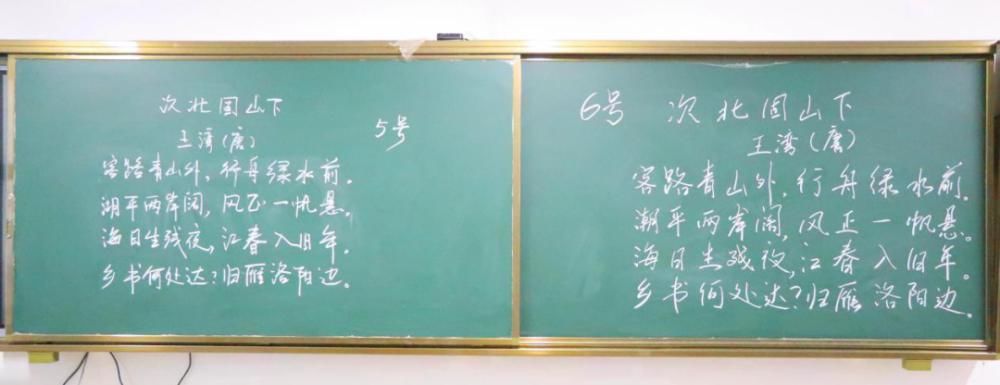 次北固山下
5号
王湾(唐)
客路青山外，行舟绿水前。
湖平两岸阔，风正一帆悬。
海日生残夜，江春入旧年。
乡书何处达？归雁洛阳边。
6号 次北固山下
王湾(唐)
客路青山外，行舟绿水前。
潮平两岸阔，风正一帆悬。
海日生残夜，江春入旧年。
乡书何处达？归雁洛阳边。